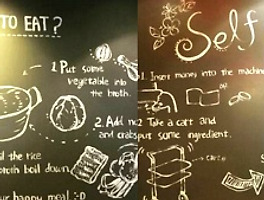 TO EAT?
1 Put some
vegetable into
the broth.
2. Add
and crabs
the rice
broth boil down.
happy meal :D
Self
1. Insert money into the machine
2 Take a cart and
put some ingredient.